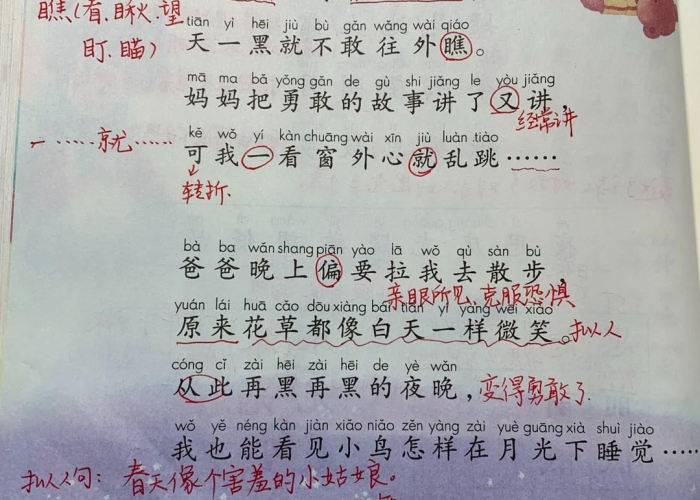 瞧(看.瞅.望
盯.瞄)
tiān yì hēi jiù bù gǎn wǎng wài qiáo
天一黑就不敢往外瞧。
mā ma bǎ yǒng gǎn de gù shi jiǎng le yòu jiǎng
妈妈把勇敢的故事讲了又讲,
经常讲
一……就……
kě wǒ yí kàn chuāng wài xīn jiù luàn tiào
可我一看窗外心就乱跳……
转折.
bà ba wǎn shang piān yào lā wǒ qù sàn bù
爸爸晚上偏要拉我去散步,
亲眼所见,克服恐惧
yuán lái huā cǎo dōu xiàng bái tiān yí yàng wēi xiào
原来花草都像白天一样微笑。
拟人
cóng cǐ zài hēi zài hēi de yè wǎn
从此再黑再黑的夜晚,
变得勇敢了
wǒ yě néng kàn jiàn xiǎo niǎo zěn yàng zài yuè guāng xià shuì jiào
我也能看见小鸟怎样在月光下睡觉……
拟人句:春天像个害羞的小姑娘。